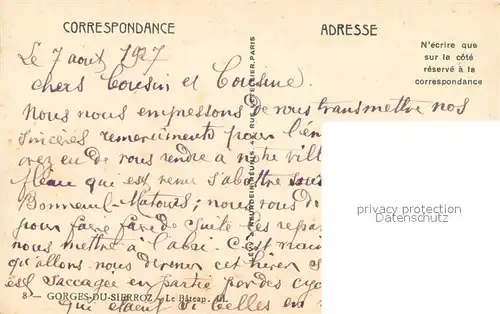 CORRESPONDANCE
ADRESSE
N'écrire que
sur le côté
réservé à la
correspondance
Le 7 août 1927
chers Cousin et Cousine.
Nous nous empressons de vous transmettre nos
sincères remerciments pour l'en
avez eu de vous rendre a notre vill
fleau qui est venu s'abattre sous
Bonneuil-Matours; nous vous di
pour faire faire de suite les repar
nous mettre à l'abri. C'est main
qu'allons nous devenir cet hiver s
est saccagee en partie par des cyc
8 - GORGES-DU-SIERROZ - Le Bateau. LL
qui etaient si belles en
LEVY & NEURDEIN REUNIS, 44, RUE LETELLIER, PARIS
privacy protection
Datenschutz